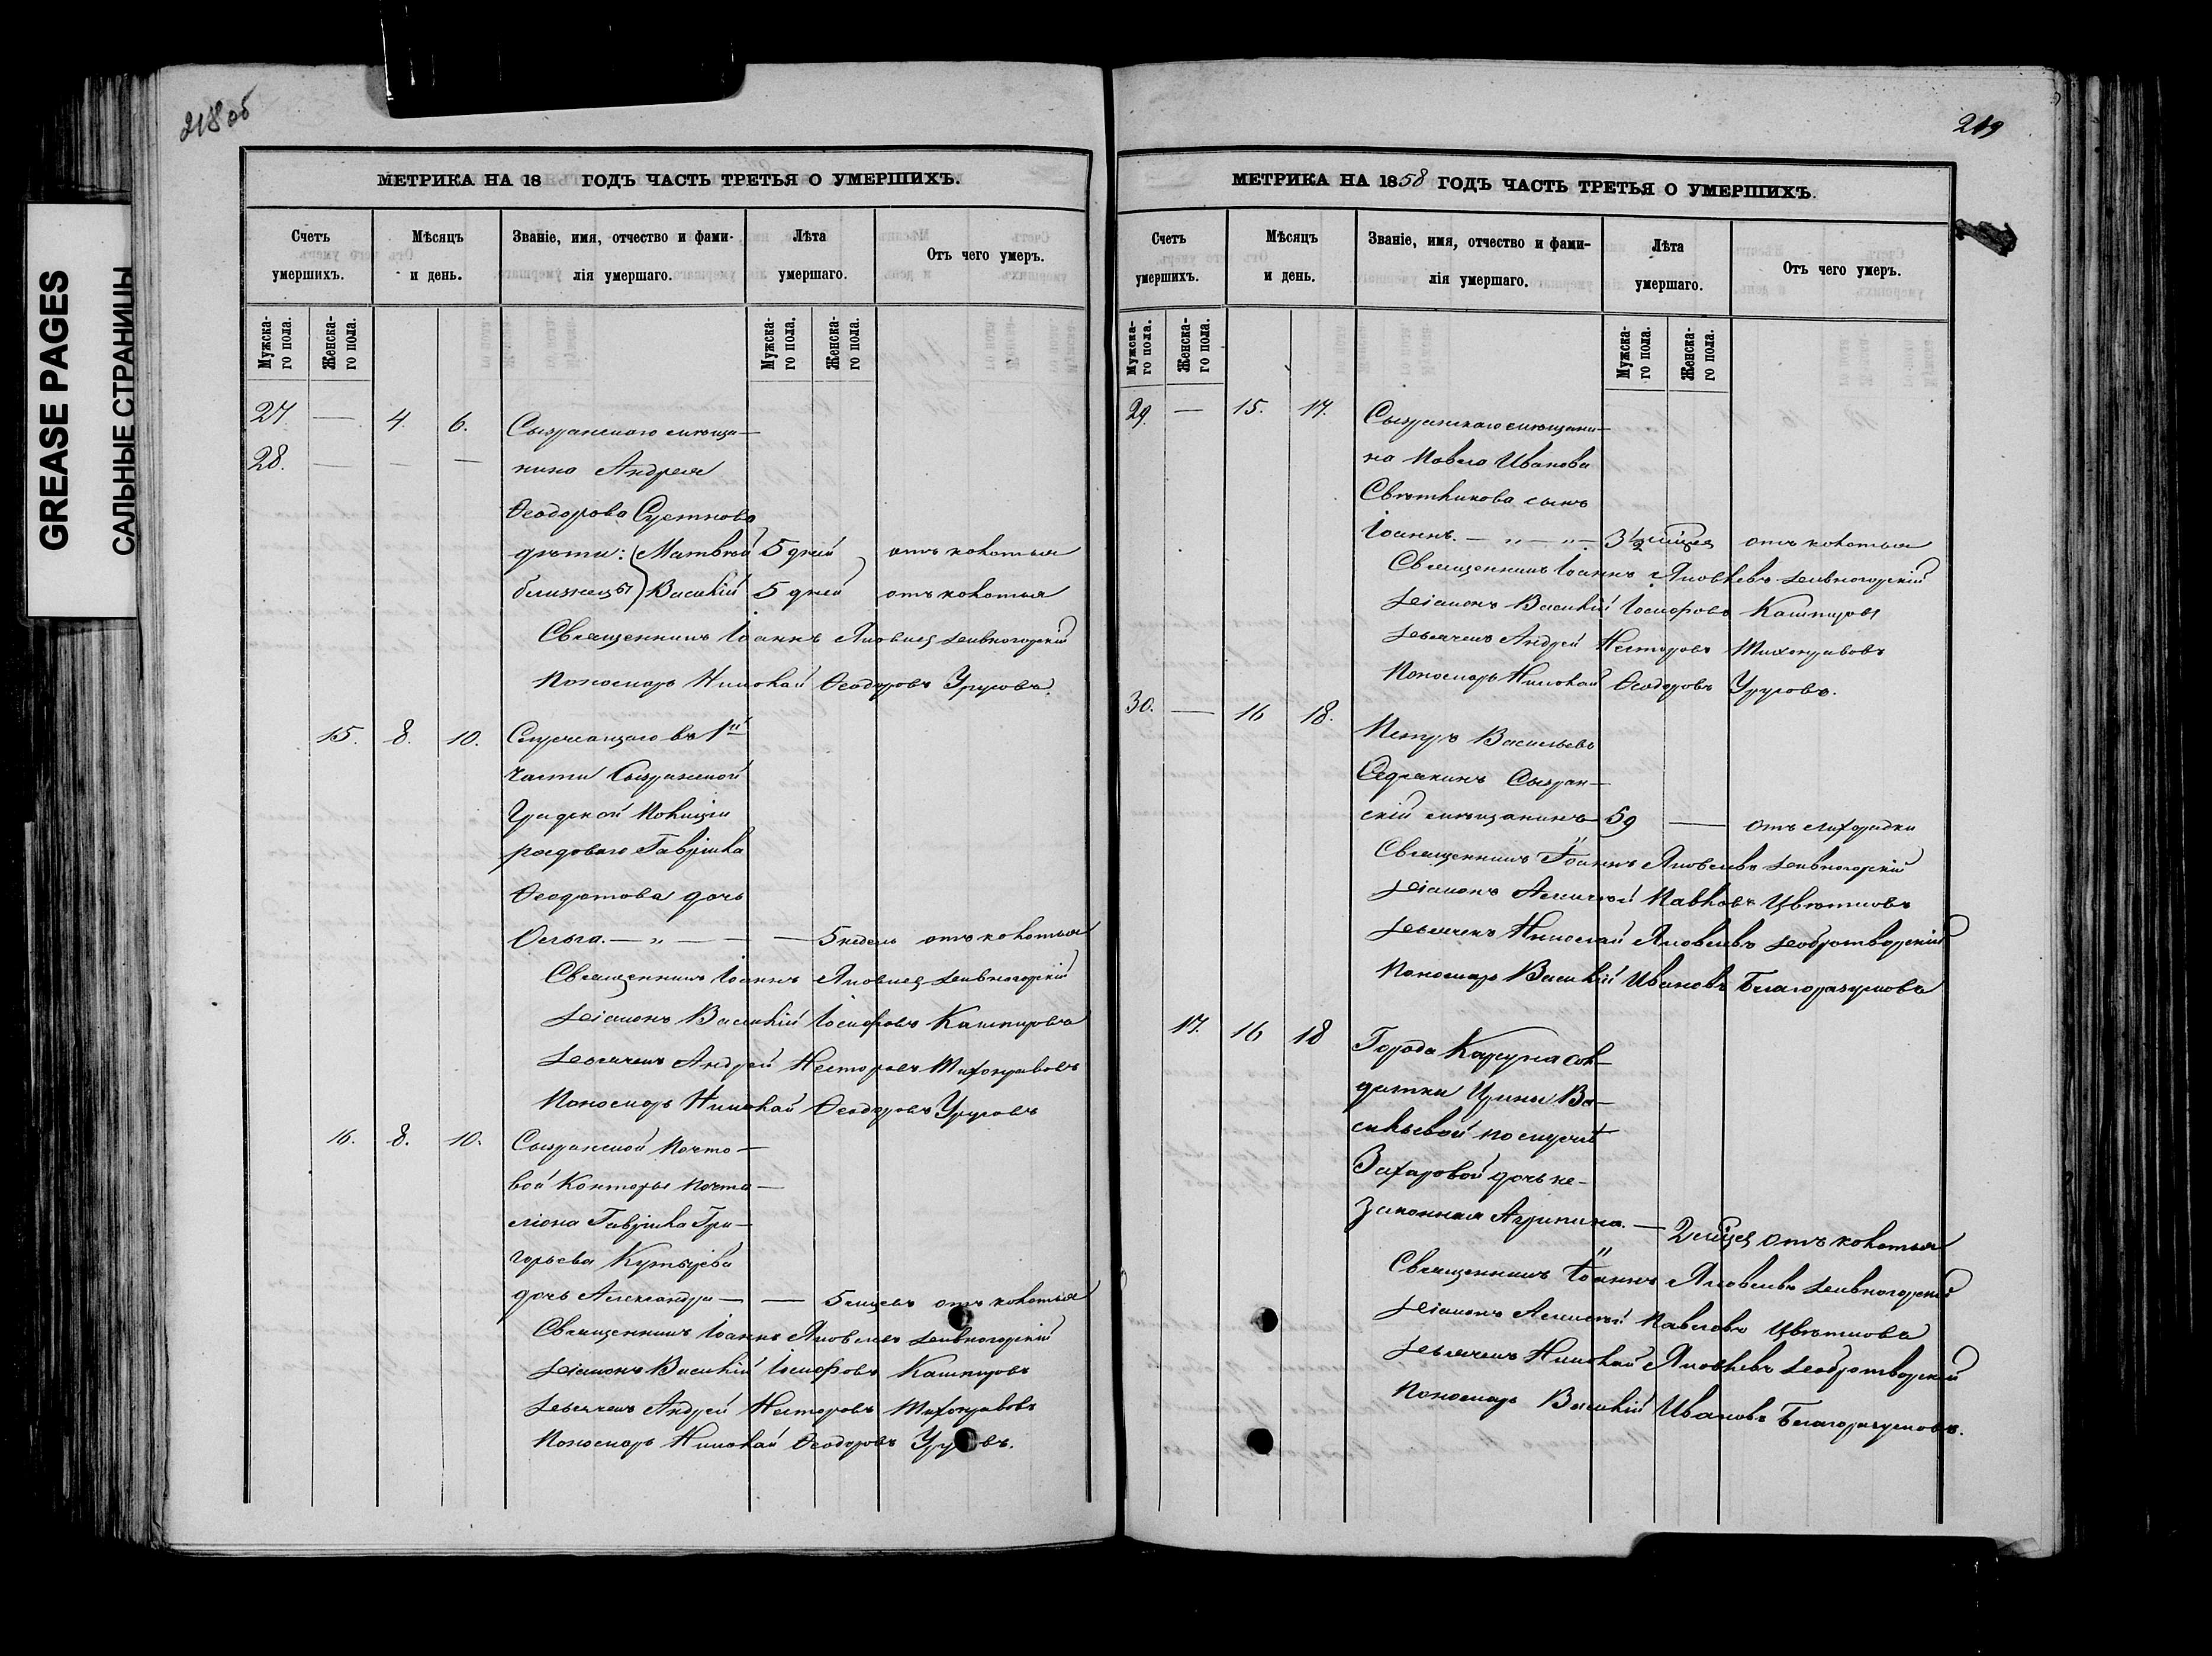 GREASE PAGES
САЛЬНЫЕ СТРАНИЦЫ
218 об
МЕТРИКА НА 18 ГОДЪ ЧАСТЬ ТРЕТЬЯ О УМЕРШИХЪ.
Счетъ умершихъ.
Мѣсяцъ и день.
Званіе, имя, отчество и фами-
лія умершаго.
Лѣта умершаго.
Отъ чего умеръ.
Мужска-
го пола.
Женска-
го пола.
Мужска-
го пола.
Женска-
го пола.
27 — 4. 6. Сызранскаго мѣща-
28. — — — нина Андрея
Ѳеодорова
дѣти: Матвѣй 5 дней отъ колотья
близнецы Василій 5 дней отъ колотья
Священникъ Іоаннъ Яковлев Дивногорскій
Пономарь Николай Ѳеодоровъ Урусовъ.
15. 8. 10. Служащаго въ 1й
части Сызранской
Градской Полиціи
рядоваго Гавріила
Ѳеодотова дочь
Ольга. — „ — — — 5 недель отъ колотья
Священникъ Іоаннъ Яковлев Дивногорскій
Діаконъ Василій Іосифовъ Кашпировъ
Дьячекъ Андрей Несторовъ Тихонравовъ
Пономарь Николай Ѳеодоровъ Урусовъ
16. 8. 10. Сызранской Почто-
вой Конторы почта-
ліона Гавріила Гри-
горьева
дочь Александра — — 5 мцевъ отъ колотья
Священникъ Іоаннъ Яковлевъ Дивногорскій
Діаконъ Василій Іосифовъ Кашпировъ
Дьячекъ Андрей Несторовъ Тихонравовъ
Пономарь Николай Ѳеодоровъ Урусовъ.
219
МЕТРИКА НА 1858 ГОДЪ ЧАСТЬ ТРЕТЬЯ О УМЕРШИХЪ.
Счетъ умершихъ.
Мѣсяцъ и день.
Званіе, имя, отчество и фами-
лія умершаго.
Лѣта умершаго.
Отъ чего умеръ.
Мужска-
го пола.
Женска-
го пола.
Мужска-
го пола.
Женска-
го пола.
29. — 15. 17. Сызранскаго мѣщани-
на Павла Иванова
Свѣтликова сынъ
Іоаннъ. — „ — „ — 3½ мцея отъ колотья
Священникъ Іоаннъ Яковлевъ Дивногорскій
Діаконъ Василій Іосифовъ Кашпировъ
Дьячекъ Андрей Несторовъ Тихонравовъ
Пономарь Николай Ѳеодоровъ Урусовъ.
30. — 16 18. Петръ Васильевъ
Сызран-
скій мѣщанинъ 59 — отъ лихорадки
Священникъ Іоаннъ Яковлевъ Дивногорскій
Діаконъ Алексѣй Павловъ Цвѣтковъ
Дьячекъ Николай Яковлевъ Добротворскій
Пономарь Василій Ивановъ Благоразумовъ
17. 16 18 Города Карсуна сол-
датки Ирины Ва-
сильевой
Захаровой дочь не-
законная Агрипина. — 2 мцея отъ колотья
Священникъ Іоаннъ Яковлевъ Дивногорскій
Діаконъ Алексѣй Павловъ Цвѣтковъ
Дьячекъ Николай Яковлевъ Добротворскій
Пономарь Василій Ивановъ Благоразумовъ.